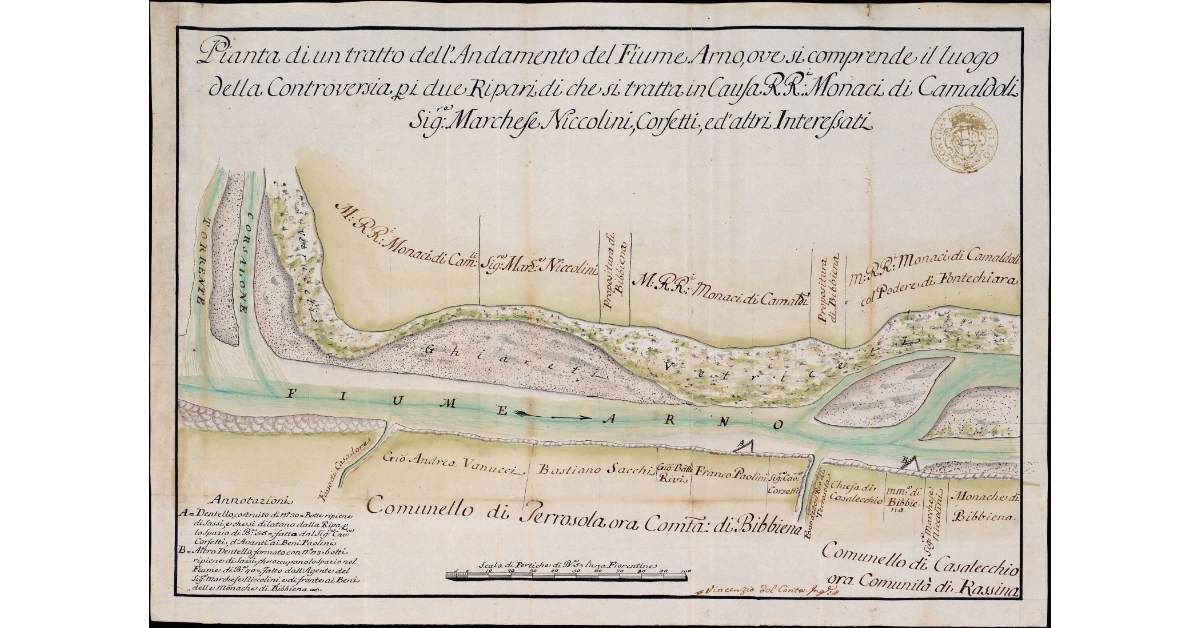 Pianta di un tratto dell'Andamento del Fiume Arno, ove si comprende il luogo
della Controversia pi due Ripari, di che si tratta in Causa RR.i Monaci di Camaldoli
Sig.re Marchese Niccolini, Corsetti, ed'altri Interessati
TORRENTE
CORSALONE
M: RR.i Monaci di Cam.li
Sig.re Mars.e Niccolini
Propositura di
Bibbiena
M: RR.i Monaci di Camald.i
Propositura
di Bibbiena
M: RR: Monaci di Camaldoli
col Podere di Pontechiara
Vetriciti
Ghiareti
Vetriciti
FIUME ARNO
A
B
Fosso di Casadore
Gio: Andrea Vanucci
Bastiano Sacchi
Gio: Batt.
Rivi
Franco Paolini
Sig.re Cav.
Corsetti
Chiesa di
Casalecchio
mm.e di
Bibbie
na.
Sig.re Marchese
Niccolini
Monache di
Bibbiena.
Comunello di Terrosola, ora Com.tà: di Bibbiena
Comunello di Casalecchio
ora Comunità di Rassina
Annotazioni
A = Dentello costruito di n.o 30 = Botti ripiene
di sassi, e che si dilatano dalla Ripa p
lo spazio di B.a 56 = fatta dal Sig.re Cav.
Corsetti, d'Avanti ai Beni Paolini
B = Altro Dentello formato con n.o 73 = botti
ripiene di sassi, che occupano lo spazio nel
Fiume di B.a 90 = fatto dall'Agente del
Sig.re Marchese Niccolini, e di fronte ai Beni
delle Monache di Bibbiena
Scala di Pertiche di B.a 5 = l'una Fiorentine
10 20 30 40 50 60 70 80 90 100
Vincenzio del Conte Ing.re